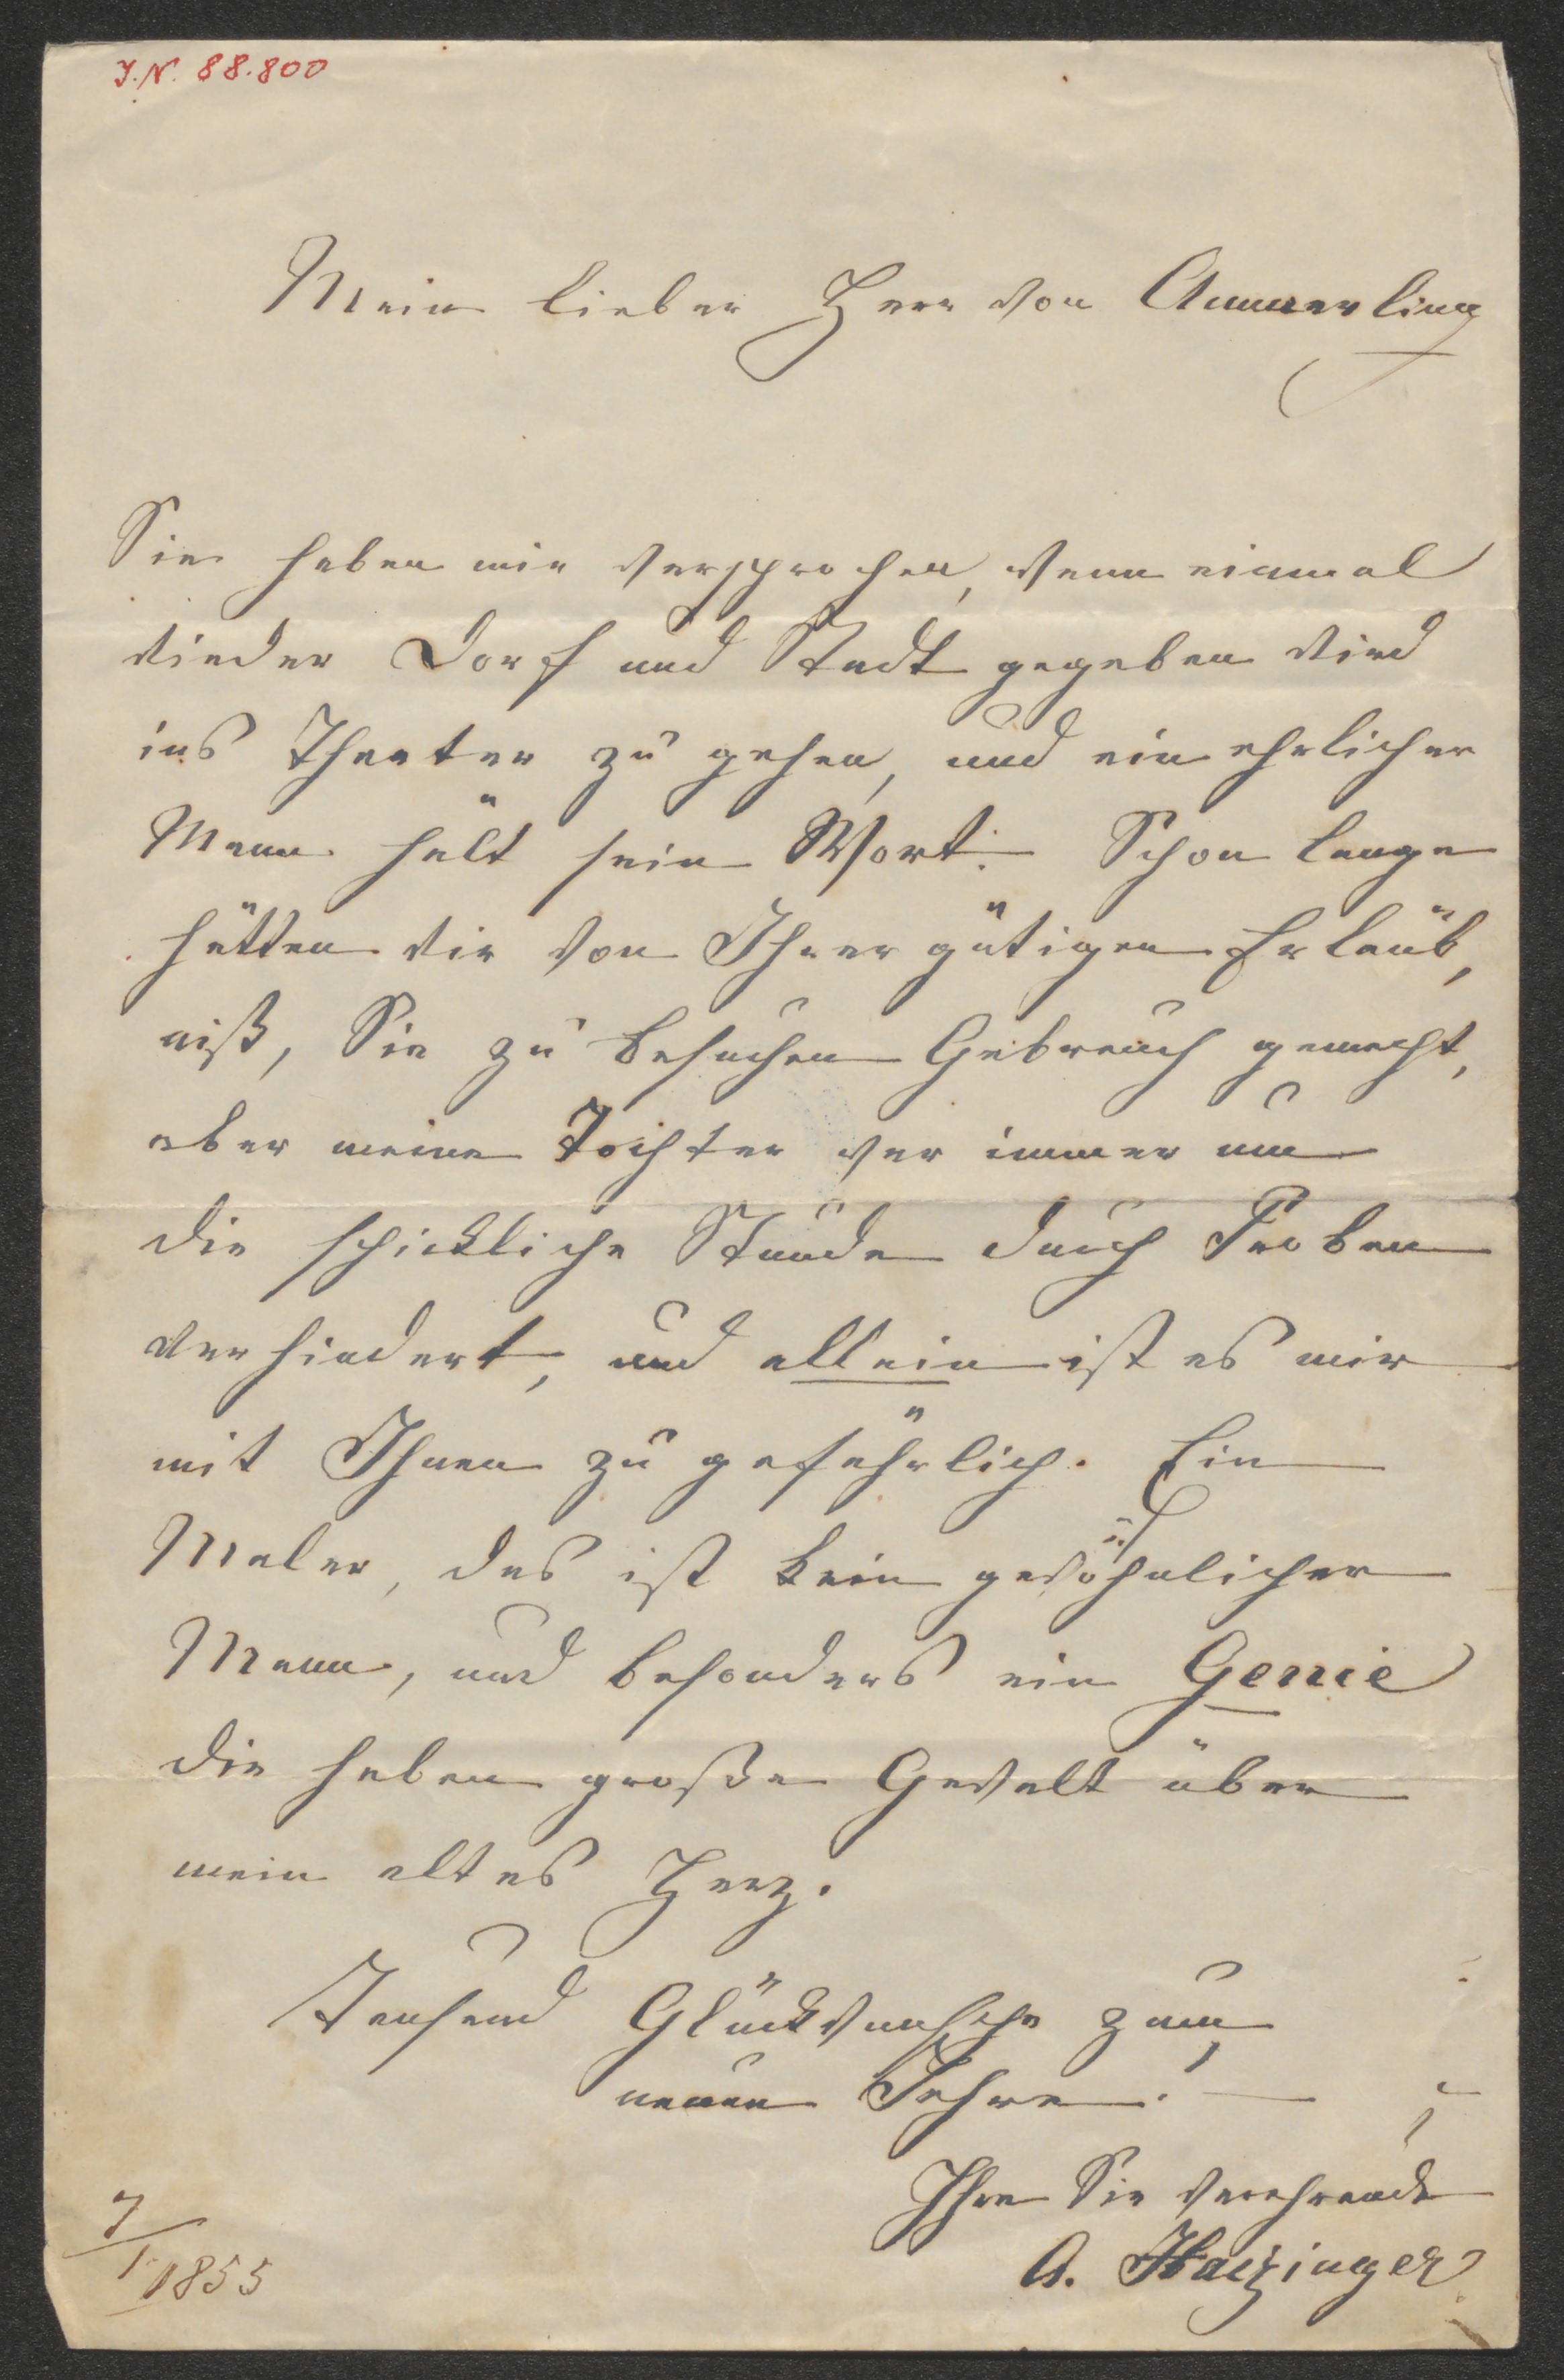 I.N. 88.800
Mein lieber Herr von Ammerling
Sie haben mir versprochen, wenn einmal
wieder Dorf und Stadt gegeben wird
ins Theater zu gehen, und ein ehrlicher
Mann hält sein Wort. Schon lange
hätten wir von Ihrer gütigen Erlaub,
niß, Sie zu besuchen Gebrauch gemacht,
aber meine Tochter war immer um
die schickliche Stunde durch Proben
verhindert, und allein ist es mir
mit Ihnen zu gefährlich. Ein
Maler, das ist kein gewöhnlicher
Mann, und besonders ein Genie
die haben große Gewalt über
mein altes Herz.
Tausend Glückwünsche zum
neuen Jahre! —
Ihre Sie verehrende
A. Haizinger
7/1 1855